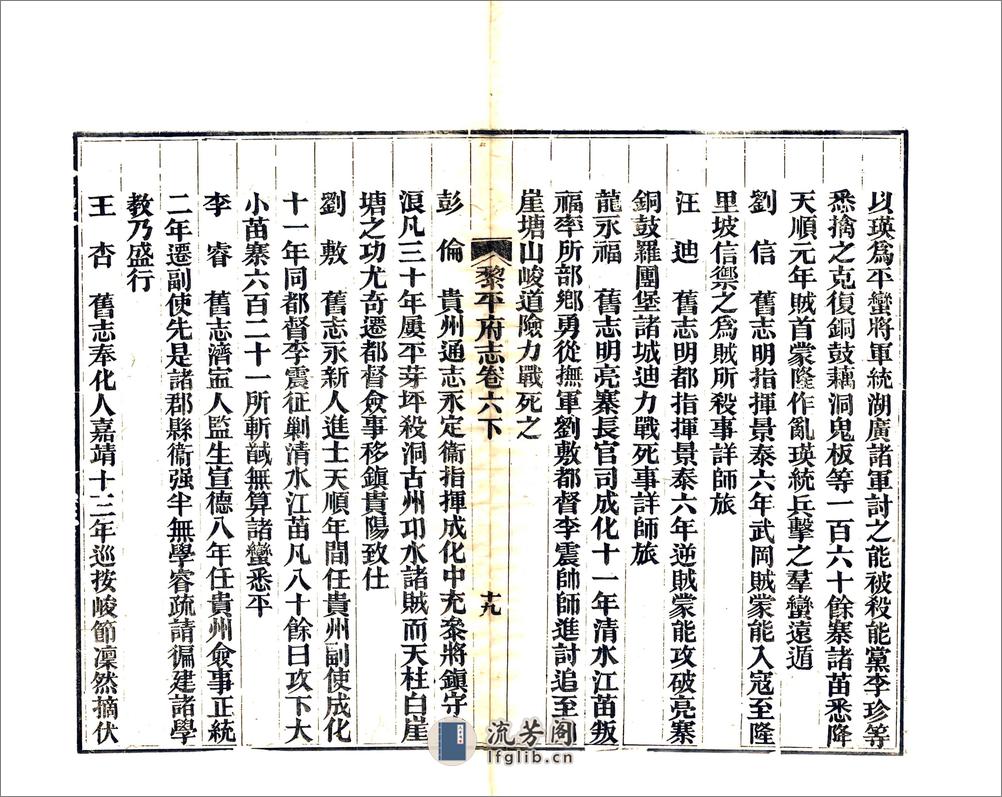 以瑛爲平蠻將軍統湖廣諸軍討之能被殺能黨李珍等
悉擒之克復銅鼓藕洞鬼板等一百六十餘寨諸苗悉降
天順元年賊首蒙隆作亂瑛統兵擊之羣蠻遠遁
劉　信　舊志明指揮景泰六年武岡賊蒙能入寇至隆
里坡信禦之爲賊所殺事詳師旅
汪　迪　舊志明都指揮景泰六年逆賊蒙能攻破亮寨
銅鼓羅團堡諸城迪力戰死事詳師旅
龍永福　舊志明亮寨長官司成化十一年清水江苗叛
福率所部鄉勇從撫軍劉敷都督李震帥師進討追至
崖塘山峻道險力戰死之
黎平府志卷六下
十九
彭　倫　貴州通志永定衞指揮成化中充叅將鎮守
浪凡三十年屢平芽坪殺洞古州邛水諸賊而天柱白崖
塘之功尤奇遷都督僉事移鎮貴陽致仕
劉　敷　舊志永新人進士天順年間任貴州副使成化
十一年同都督李震征剿清水江苗凡八十餘日攻下大
小苗寨六百二十一所斬馘無算諸蠻悉平
李　睿　舊志濟寍人監生宣德八年任貴州僉事正統
二年遷副使先是諸郡縣衞强半無學睿疏請徧建諸學
教乃盛行
王　杏　舊志奉化人嘉靖十三年巡按峻節凜然摘伏
流芳阁
lfglib.cn